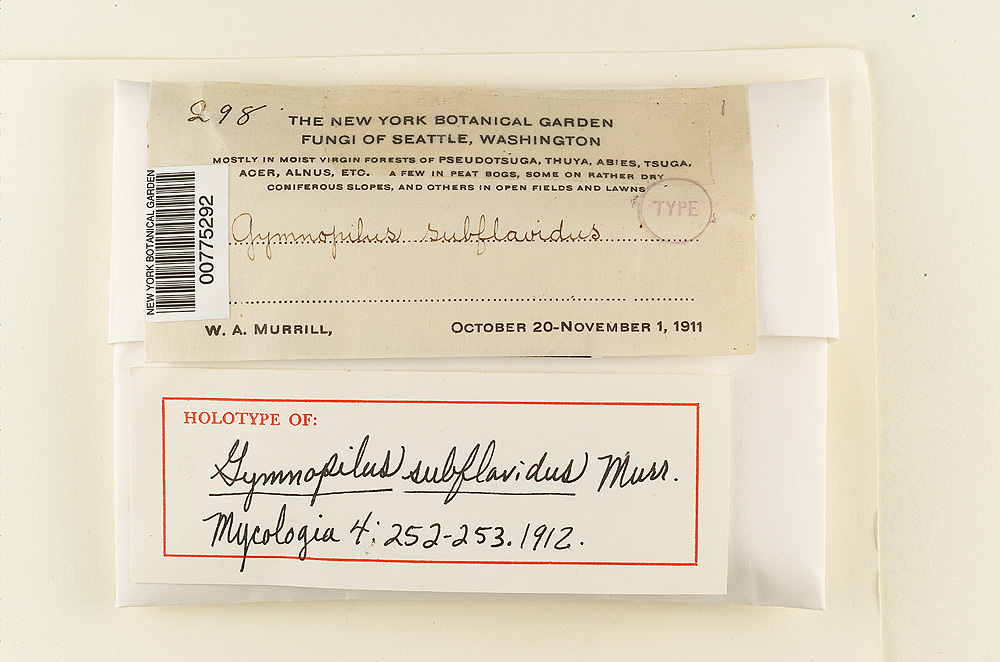 298
THE NEW YORK BOTANICAL GARDEN
FUNGI OF SEATTLE, WASHINGTON
MOSTLY IN MOIST VIRGIN FORESTS OF PSEUDOTSUGA, THUYA, ABIES, TSUGA,
ACER, ALNUS, ETC. A FEW IN PEAT BOGS, SOME ON RATHER DRY
CONIFEROUS SLOPES, AND OTHERS IN OPEN FIELDS AND LAWNS
TYPE
NEW YORK BOTANICAL GARDEN
00775292
Gymnopilus subflavidus
W. A. MURRILL,
OCTOBER 20-NOVEMBER 1, 1911
HOLOTYPE OF:
Gymnopilus subflavidus Murr.
Mycologia 4: 252-253. 1912.